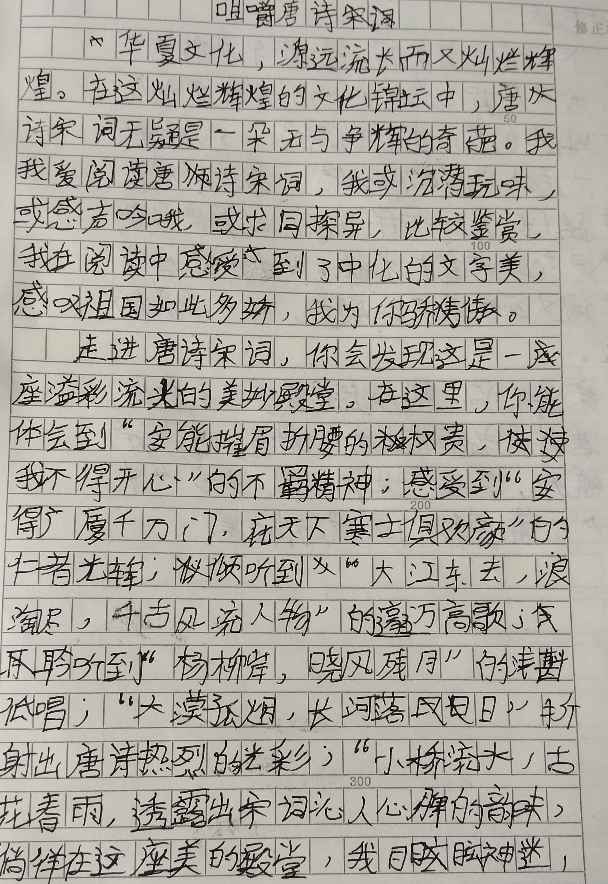 咀嚼唐诗宋词
华夏文化，源远流长而又灿烂辉
煌。在这灿烂辉煌的文化锦坛中，唐
诗宋词无疑是一朵无与争辉的奇葩。我
我爱阅读唐诗宋词，我或沉潜玩味，
或感声吟哦，或求同探异，比较鉴赏，
我在阅读中感受到了中化的文字美，
感叹祖国如此多娇，我为你骄傲。
走进唐诗宋词，你会发现这是一
座溢彩流光的美妙殿堂。在这里，你能
体会到“安能摧眉折腰的权贵，使
我不得开心”的不羁精神；感受到“安
得广厦千万门，庇天下寒士俱欢颜”的
仁者光辉；倾听到“大江东去，浪
淘尽，千古风流人物”的豪迈高歌；
聆听到“杨柳岸，晓风残月”的浅斟
低唱；“大漠孤烟，长河落日”折
射出唐诗热烈的光彩；“小桥流水，古
花春雨，透露出宋词沁人心脾的韵味，
徜徉在这座美的殿堂，我目眩神迷，
50
100
200
300